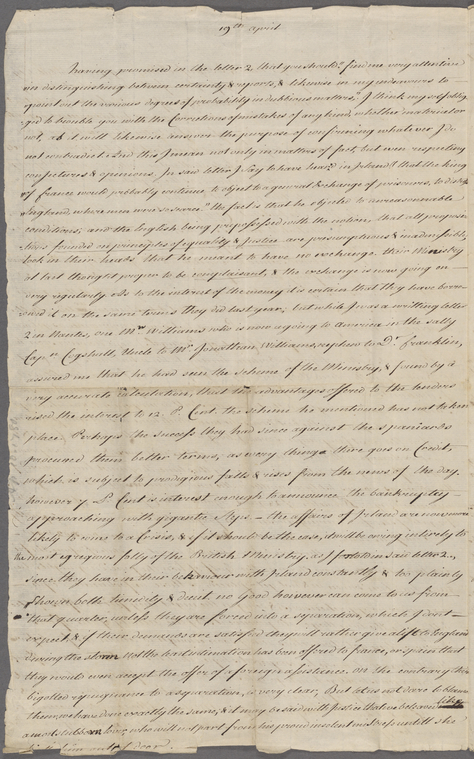 19th April
having promised in the letter 2 that you should find me very attentive
in distinguishing between certainty & reports, & likewise in my endeavours to
point out the various degrees of probability in dubious matters, I think my self oblig
ged to trouble you with the Corrections of mistakes of any kind, whether material or
not, as it will likewise answer the purpose of confirming whatever I do
not contradict. And this I mean not only in matters of fact, but even respecting
conjectures & opinions. In said letter I say to have in Ireland that the king
of france would probably continue to object to a general Exchange of prisoners, to
England where men were so scarce. the fact is that he objected to unreasonable
conditions; and the English being prepossessed with the notion, that all propo
sitions founded on principles of equality & Justice are presumptuous & inadmissible,
took in their heads that he meant to have no exchange. their Ministry
at last thought proper to be complaisant, & the exchange is now going on
very regularly. As to the interest of the money it is certain that they have borro
wed it on the same terms they did last year; but which I was a writing letter
2 in Nantes, one Mr Williams who is now agoing to America in the Sally
Capn Cogshall, Uncle to Mr Jonathan Williams, nephew to Dr Franklin,
assured me that he had seen the scheme of the Ministry, & found by a
very accurate calculation, that the advantages offered to the lenders
rised the interest to 12 P Cent. the scheme he mentioned has not taken
place. Perhaps the success they had since against the spaniards
procured them better terms, as every thing there goes on Credit,
which is subject to prodigious falls & rises from the news of the day.
however 7 P Cent is interest enough to announce the bankruptcy
approaching with gigantic steps — the affairs of Ireland are now
likely to come to a Crisis, & if it should be the case, it will be owing intirely to
the most egregious folly of the British Ministry, as I foretold in said letter 2,
since they have in their behaviour with Ireland constantly & too plainly
shown both timidity & deceit. no good however can come to us from
that quarter, unless they are forced into a separation, which I dont
expect, & if their demands are satisfied they will rather give a lift to England
during the storm. Not the least inclination has been offered to france, or spain that
they would even accept the offer of a foreign assistance. On the contrary their
bigotted repugnance to a separation, is very clear. But let us not dare to blame
them, we have done exactly the same, & it may be said with Justice that we behaved like
a most stubborn lover, who will not part from his proud insolent mistress untill she